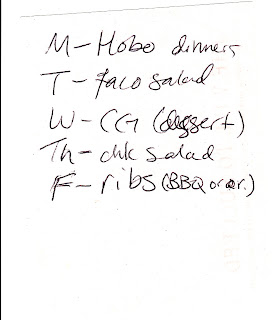 M - Hobo dinners
T - taco salad
W - CG (dessert)
Th - chk salad
F - ribs (BBQ or or.)